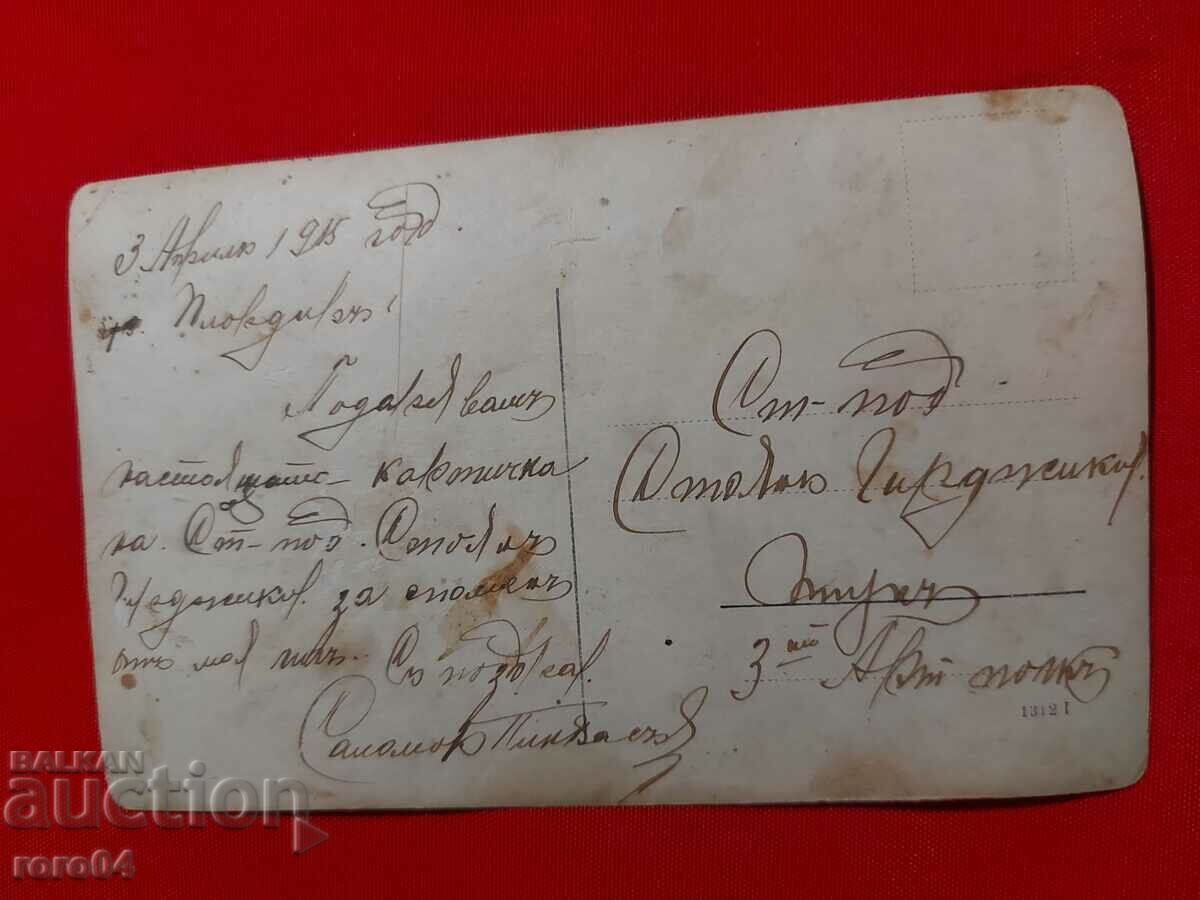 3 Априлъ 1915 год.
гр. Пловдивъ
Подарявамъ
настоящата картичка
на Ст-под. Стоянъ
Гърджиков. за споменъ
отъ мой лич. Съ поздрав.
Саламон Пинкасъ
Ст-под
Стоянъ Гирджиков.
3ий Арт полкъ
13121
BALKAN
auction
roro04